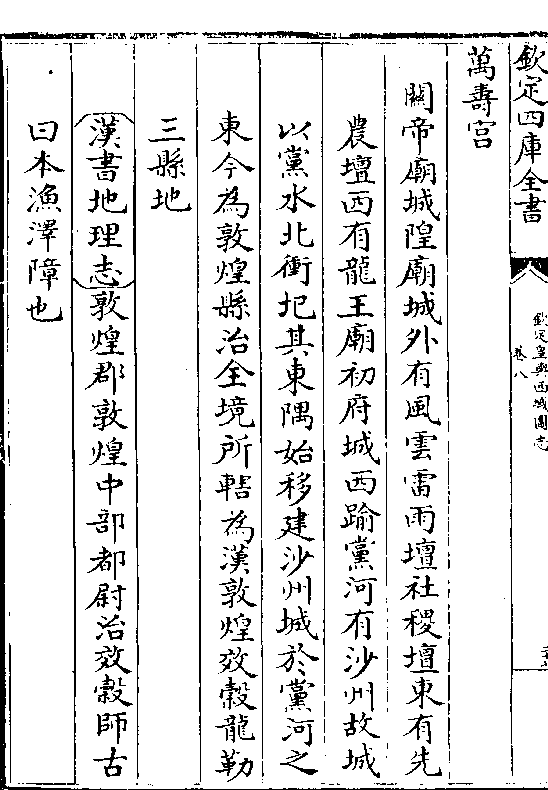 欽定四庫全書
欽定皇輿西域圖志
卷八
萬壽宮
關帝廟城隍廟城外有風雲雷雨壇社稷壇東有先
農壇西有龍王廟初府城西踰黨河有沙州故城
以黨水北衝圯其東隅始移建沙州城於黨河之
東今為敦煌縣治全境所轄為漢敦煌效穀龍勒
三縣地
漢書地理志敦煌郡敦煌中部都尉治效穀師古
曰本漁澤障也